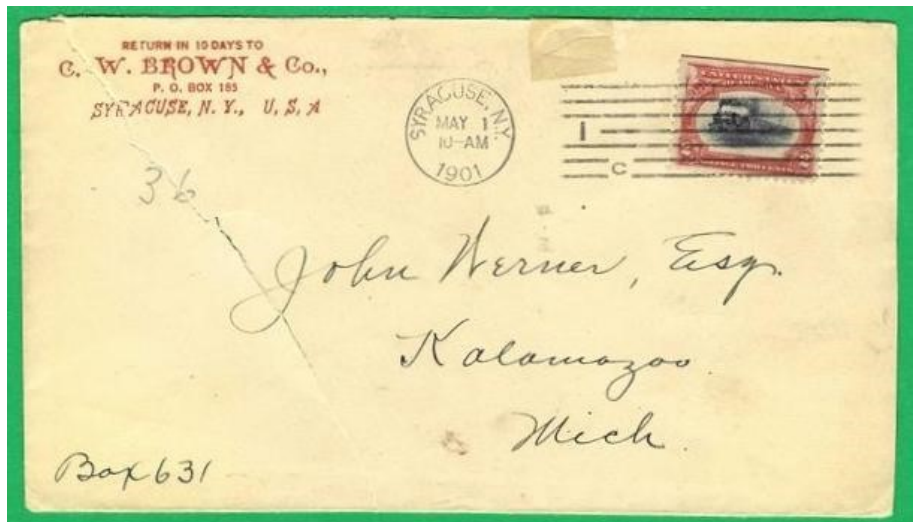 RETURN IN 10 DAYS TO
C. W. BROWN & Co.,
P. O. BOX 185
SYRACUSE, N. Y., U. S. A
SYRACUSE, N.Y.
MAY 1
10-AM
1901
1
C
UNITED STATES
OF AMERICA
2 2
36
John Werner, Esq.
Kalamazoo
Mich.
Box 631